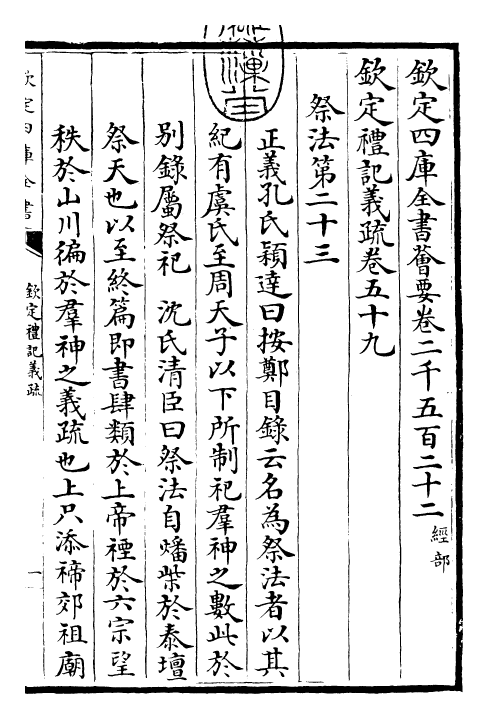 欽定四庫全書薈要卷二千五百二十二 經部
欽定禮記義疏卷五十九
祭法第二十三
正義孔氏穎達曰按鄭目錄云名為祭法者以其
紀有虞氏至周天子以下所制祀羣神之數此於
別錄屬祭祀 沈氏清臣曰祭法自燔柴於泰壇
祭天也以至終篇即書肆類於上帝禋於六宗望
秩於山川徧於羣神之義疏也上只添禘郊祖廟
欽定四庫全書
欽定禮記義疏
一